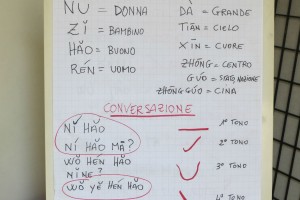 NǓ = DONNA
ZǏ = BAMBINO
HǍO = BUONO
RÉN = UOMO
DÀ = GRANDE
TIĀN = CIELO
XĪN = CUORE
ZHŌNG = CENTRO
GÚO = STATO, NAZIONE
ZHŌNG GÚO = CINA
CONVERSAZIONE
NǏ HǍO
NǏ HǍO MĀ?
WǑ HĚN HǍO
NǏNE?
WǑ YĚ HĚN HǍO
1° TONO
2° TONO
3° TONO
4° TONO